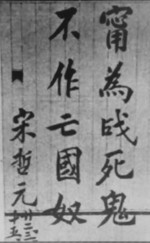 甯為戰死鬼
不作亡國奴
宋哲元